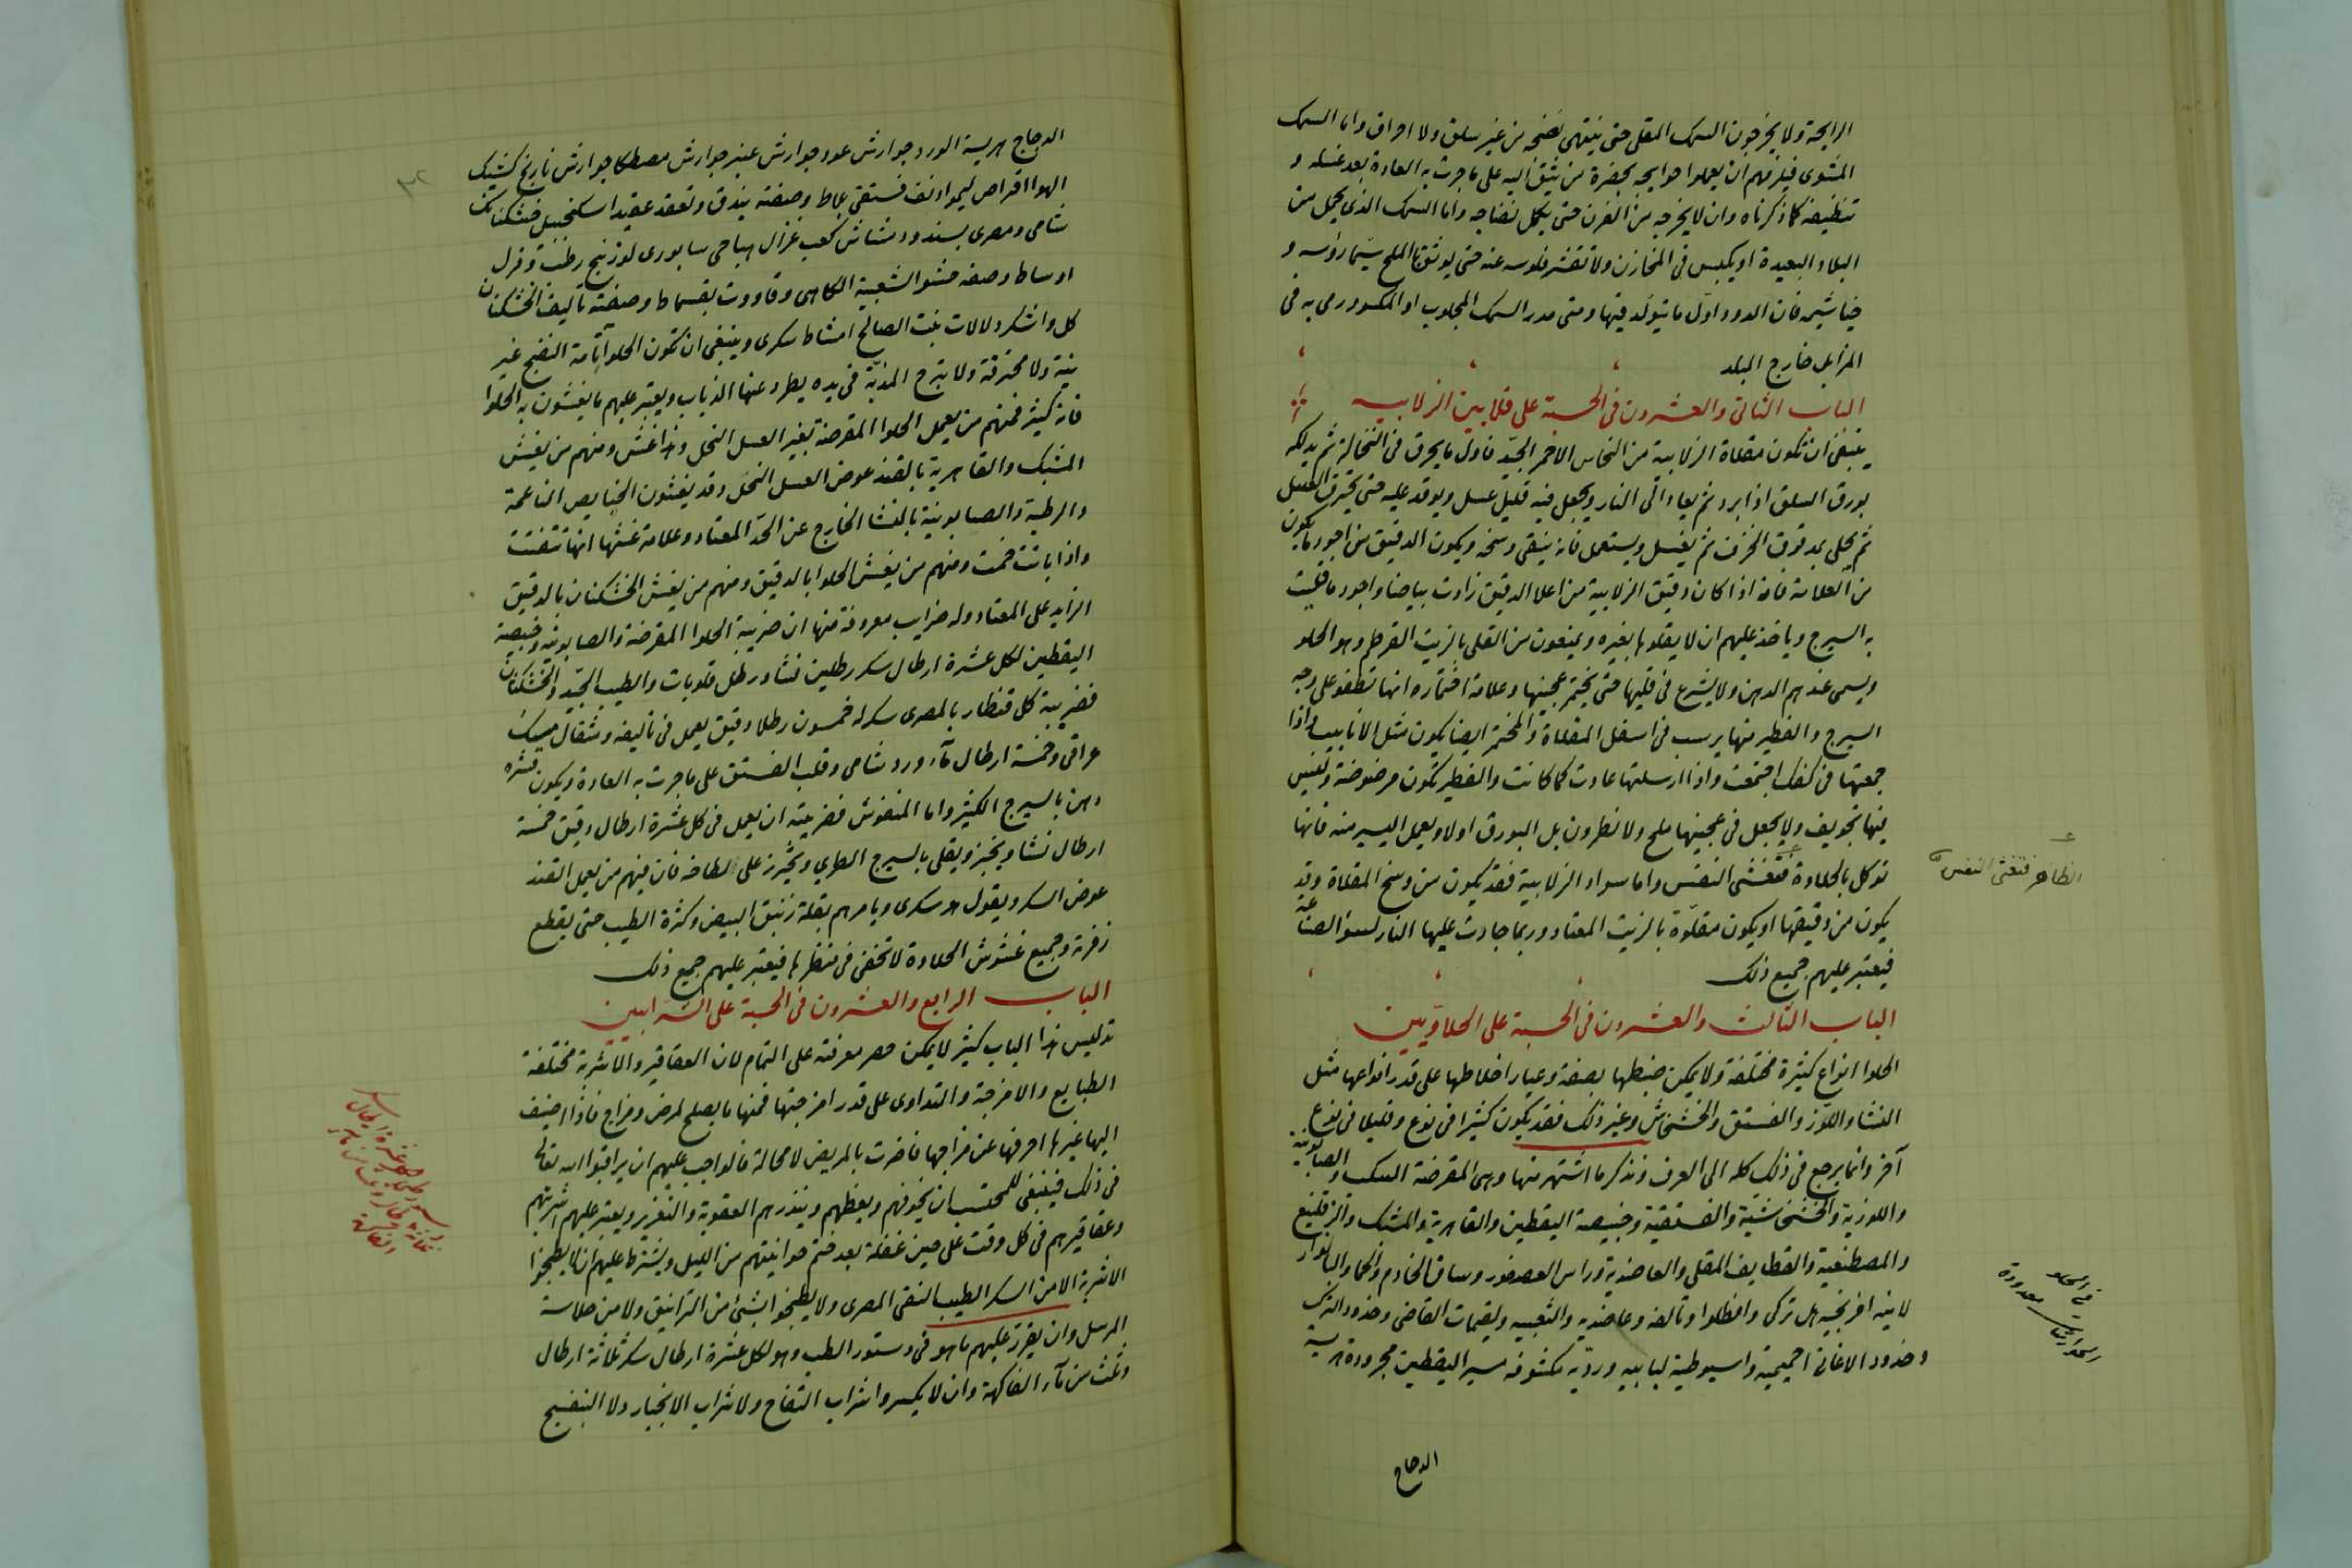 الرايحة ولا يخرجون السمك المقلى حتى ينتهى نضجه من غير سلق ولا احراق واما السمك
المشوى فيلزمهم ان يعملوا حوايجه بحضرة من يثق اليه على ما جرت به العادة بعد غسله و
تنظيفه كما ذكرناه وان لا يخرجه من الفرن حتى يكمل نضاجه واما السمك الذى يحمل من
البلاد البعيدة او يكبس فى المخازن ولا تقشر فلوسه عنه حتى يوثق بالملح سيما رؤسه و
خياشيمه فان الدود اول ما يتولد فيها ومتى مدر السمك المجلوب او المكسود رمى به فى
المزابل خارج البلد
الباب الثانى والعشرون فى الحسبة على قلايين الزلابيه
ينبغى ان تكون مقلاة الزلابية من النحاس الاحمر الجيد فاول ما يحرق فى النخالة ثم يدلكه
بورق السلق اذا برد ثم يعاد الى النار ويجعل فيه قليل عسل ويوقد عليه حتى يحترق العسل
ثم يجلى بمدقوق الخزف ثم يغسل ويستعمل فانه ينقى وسخه ويكون الدقيق من اجود ما يكون
من العلامة فانه اذا كان دقيق الزلابية من اعلا الدقيق زادت بياضا واجود ما قليت
به السيرج وياخذ عليهم ان لا يقلوها بغيره ويمنعون من القلى بالزيت القرطم وهو الحلو
ويسمى عندهم الدهن ولا يشرع فى قليها حتى يختمر عجينها وعلامة اختماره انها تطفو على وجه
السيرج والفطير منها يرسب فى اسفل المقلاة والمختمر ايضا يكون مثل الانابيب اذا
جمعتها فى كفك اجتمعت واذا ارسلتها عادت كما كانت والفطير تكون مرضوضة وليس
فيها تجويف ولا يجعل فى عجينها ملح ولا نطرون بل البورق اولا ويعمل اليسير منه فانها
توكل بالحلاوة فتغشى النفس واما سواد الزلابية فقد يكون من وسخ المقلاة وقد
يكون من دقيقها او يكون مقلوة بالزيت المعتاد وربما جادت عليها النار لسو الصناعة
فيعتبر عليهم جميع ذلك
الظاهر فتغثى النفس
الباب الثالث والعشرون فى الحسبة على الحلاويين
الحلوا انواع كثيرة مختلفة ولا يمكن ضبطها بصفة وعيار اخلاطها على قدر انواعها مثل
النشا واللوز والفستق والخشخاش وغير ذلك فقد يكون كثيرا فى نوع وقليلا فى نوع
آخر وانما يرجع فى ذلك كله الى العرف ونذكر ما اشتهر منها وهى المقرضة السكب والصابونية
واللوزية والخشخاشية والفستقية وخبيصة اليقطين والقاهرية والمشبك
والمصطنعية والقطايف المقلى والعاضدية وراس العصفور وساق الخادم
لاينه افرنجيه هل تركى وانطلوا وتالفه وعاضديه والشعيبيه ولقيمات القاضى وخدود الترك
وخدود الاغانى اخميمية واسيوطية لبابيه ورديه مكشوفه سير اليقطين مجرودة هريسة
فى الحلو
معدودة
الدجاج
الدجاج هريسة الورد جوارش عود جوارش عنبر جوارش مصطكا جوارش نارنج كشيك
الهوا اقراص ليمو وصفته بندق وتعقد عقيدا اسكنجبيل خشكنانك
شامى ومصرى بسندود مشاش كعب غزال سابورى لوزينج رطب وقرل
اوساط وصفه حشو الشعبية الكاهى وقاووت بقسماط وصفة تاليف الخشكنان
كل واشكر ولالات بنت الصالح امشاط سكرى وينبغى ان تكون الحلوا تامة النضج غير
نية ولا محترقة ولا يبرح المذبة فى يده يطرد عنها الذباب ويعتبر عليهم ما يغشون به الحلوا
فانه كثير فمنهم من يعمل الحلوا المقرضة بغير العسل النحل وهذا غش ومنهم من يغش
المشبك والقاهرية بالقند عوض العسل النحل وقد يغشون الخبايص الناعمة
والرطبة والصابونية بالنشا الخارج عن الحد المعتاد وعلامة غشها انها تتفتت
واذا باتت خمت ومنهم من يغش الحلوا بالدقيق ومنهم من يغش الخشكنان بالدقيق
الزايد على المعتاد وله ضرايب معروفة منها ان ضريبة الحلوا المقرضة والصابونية وخبيصة
اليقطين لكل عشرة ارطال سكر رطلين نشا ورطل قلوبات والطيب الجيد والخشكنان
فضريبة كل قنطار بالمصرى سكر له خمسون رطلا دقيق يعمل فى تاليفه ومثقال مسك
عراقى وخمسة ارطال ماء ورد شامى وقلب الفستق على ما جرت به العادة ويكون قشره
دهن بالسيرج الكثير واما المنفوش فضريبته ان يعمل فى كل عشرة ارطال دقيق خمسة
ارطال نشا ويخبز ويقلى بالسيرج الطرى ويحترز على لطافه فان فيهم من يعمل القند
عوض السكر ويقول هو سكرى ويامرهم بقلة زنبق البيض وكثرة الطيب حتى يقطع
زفرته وجميع غشوش الحلاوة لا تخفى فى منظرها فيعتبر عليهم جميع ذلك
الباب الرابع والعشرون فى الحسبة على الشرابيين
تدليس هذا الباب كثير لا يمكن حصر معرفته على التمام لان العقاقير والاشربة مختلفة
الطبايع والامزجة والتداوى على قدر امزجتها فمنها ما يصلح لمرض ومزاج فاذا اضيف
اليها غيرها احرفها عن مزاجها فاضرت بالمريض لا محالة فالواجب عليهم ان يراقبوا الله تعالى
فى ذلك فينبغى للمحتسب ان يخوفهم ويعظهم وينذرهم العقوبة والتعزير ويعتبر عليهم اشربتهم
وعقاقيرهم فى كل وقت على حين غفلة بعد ختم حوانيتهم من الليل ويشترط عليهم ان لا يطبخوا
الاشربة الا من السكر الطيب النقى المصرى ولا يطبخوا بشئ من الترانيق ولا من صلاسة
المرسل وان يقرر عليهم ما هو فى دستور الطب وهو لكل عشرة ارطال سكر ثلاثة ارطال
وثلث من ماء الفاكهة وان لا يكسروا شراب التفاح ولا شراب الانجبار ولا البنفسج
٣٢